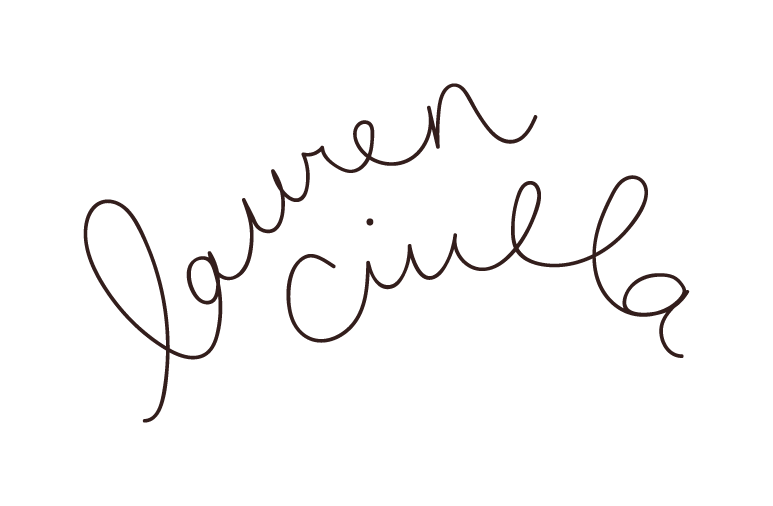 lauren
ciulla